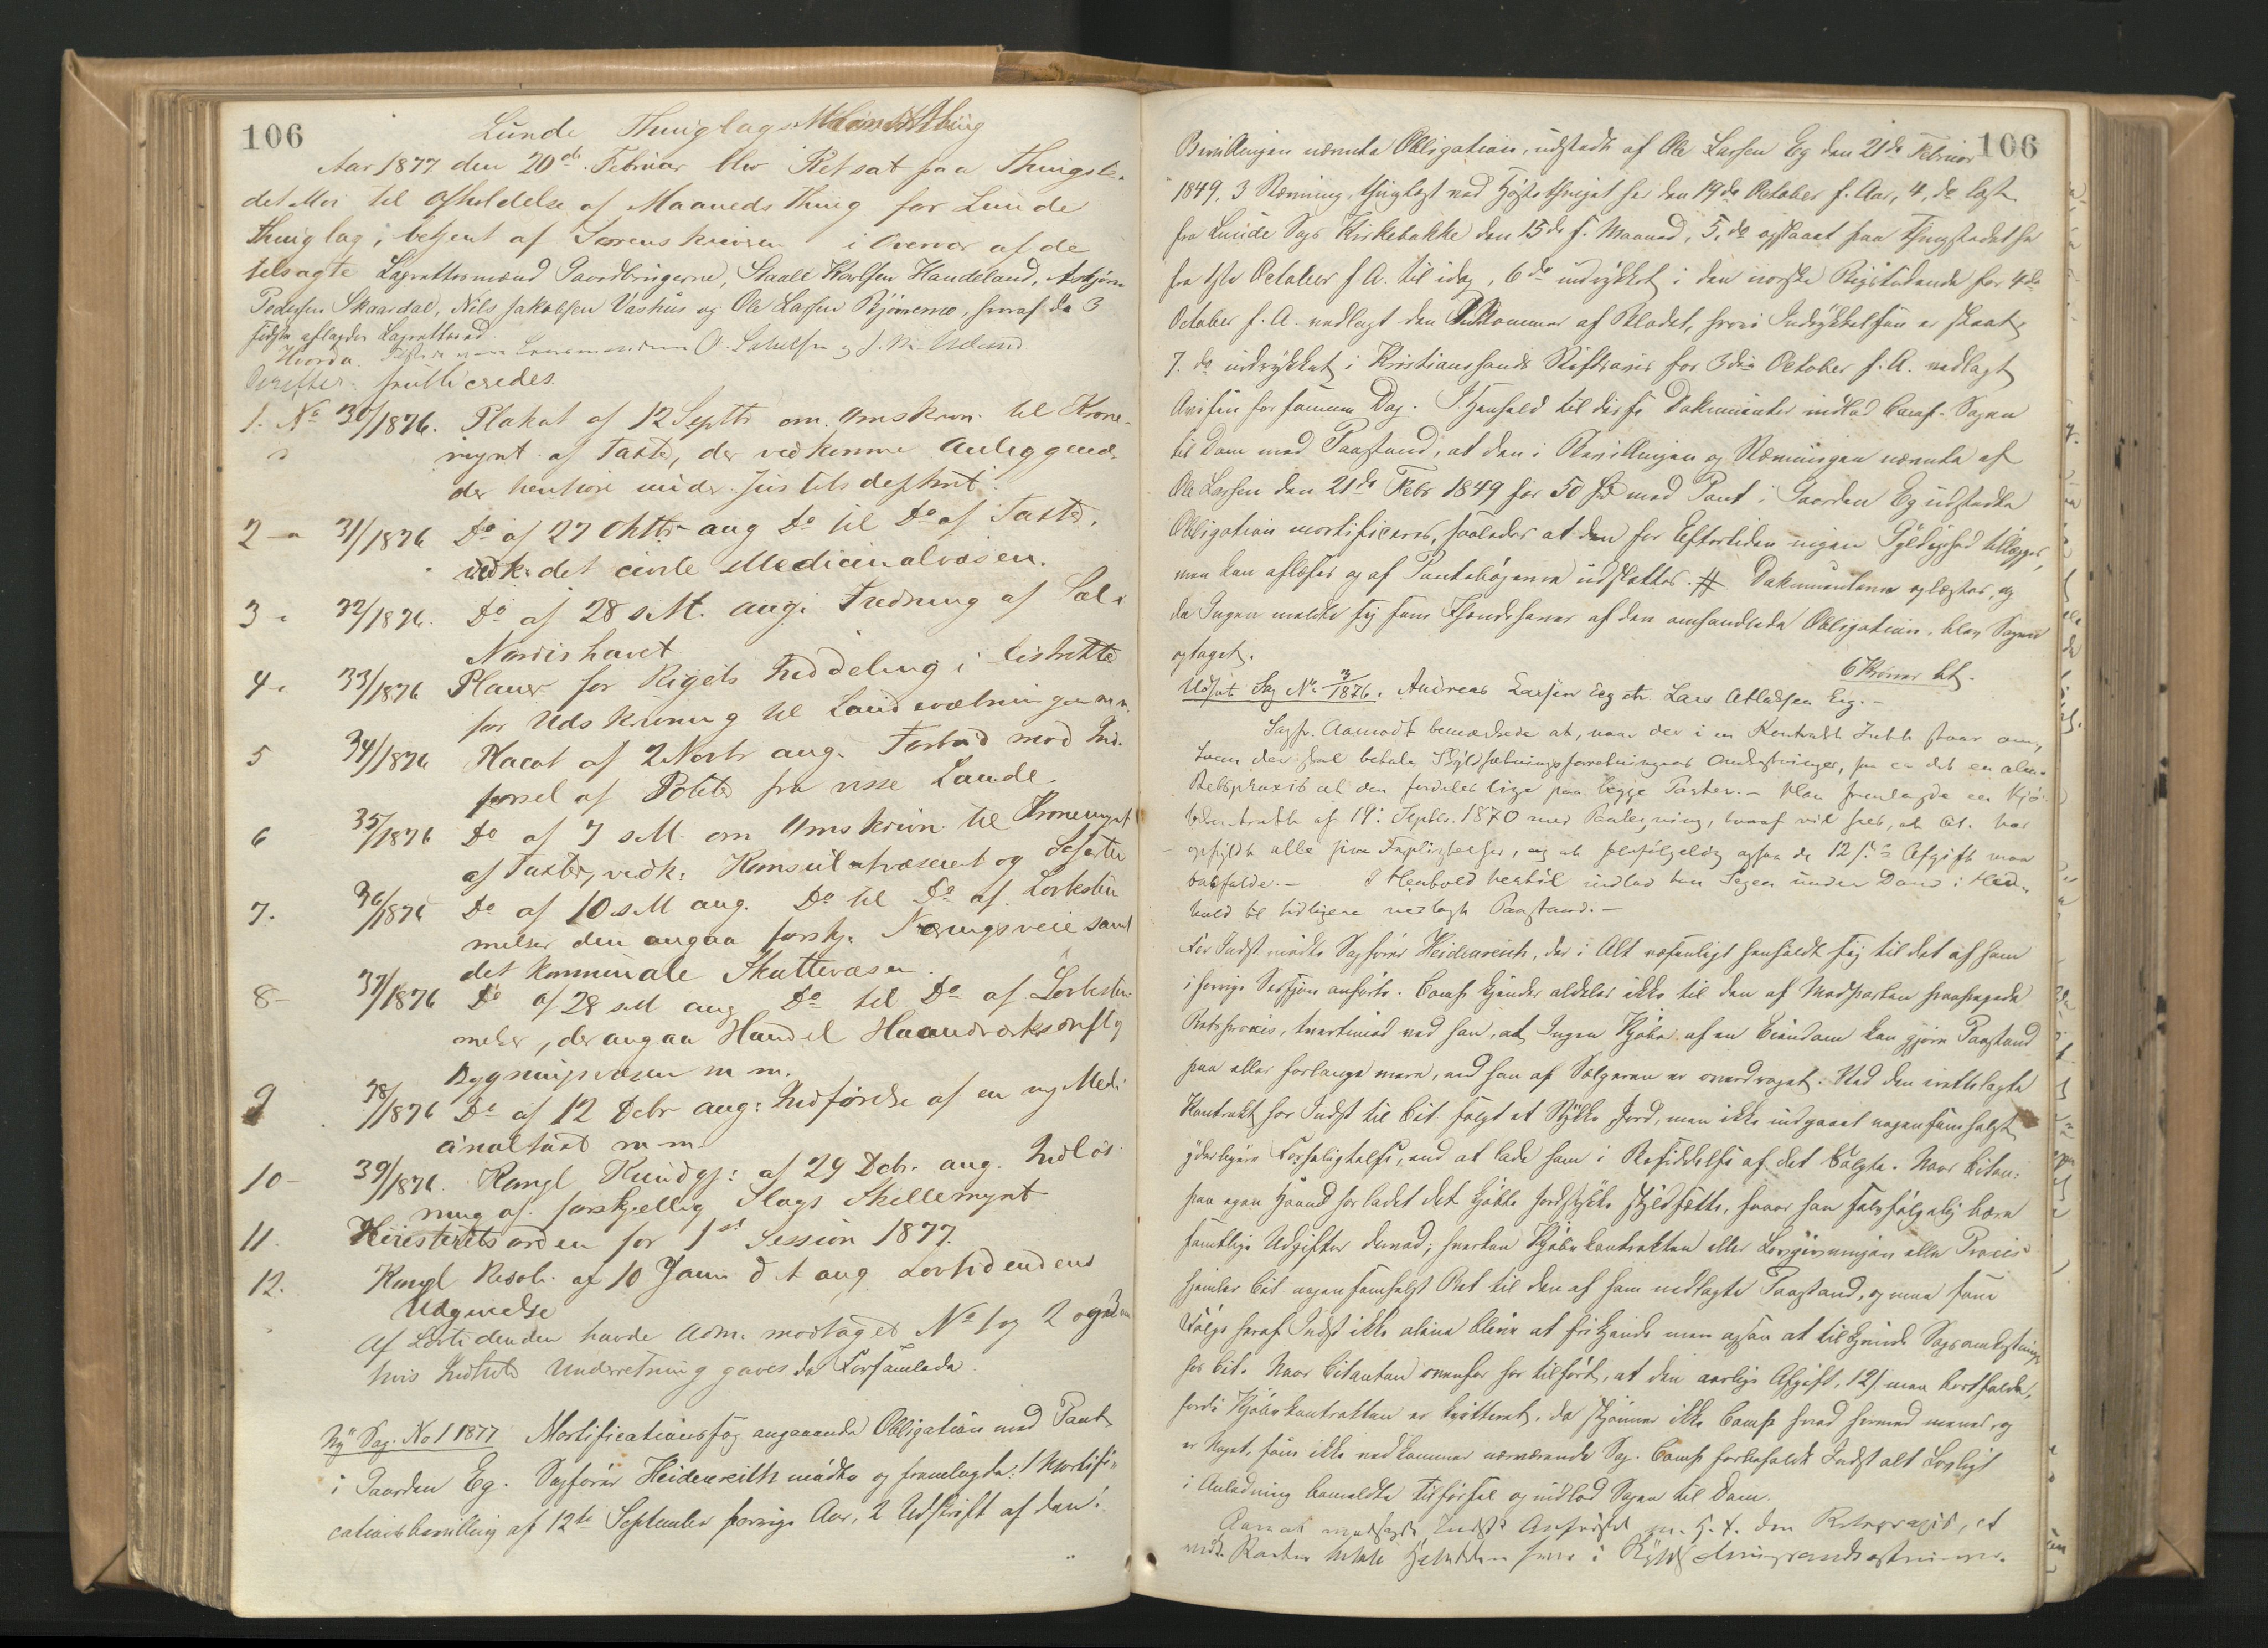 106
Lunde Thinglags Maanedsthing
Aar 1877 den 20de Februar blev Ret sat paa Thingste-
det Moi til Afholdelse af Maaneds Thing for Lunde
Thinglag, betjent af Sorenskriveren i Overvær af de
tilsagte Lagrettesmænd Gaardbrugerne, Staale Karlsen Handeland, Asbjørn
Pedersen Skaardal, Nils Jakobsen Vashus og Ole Larsen Bjørnemo, hvoraf de 3
sidste aflagde Lagrettesed.
Hvorda
Derefter publiceredes
1. No 30/1876. Plakat af 12 Septbr om Omskrivn. til Krone-
mynt af Taxter, der vedkomme Anliggender
der henhøre under Justitsdepartmt.
2 - 31/1876 Do af 27 Oktbr ang Do til Do af Taxter,
vedk. det civile Medicinalvæsen.
3 - 32/1876. Do af 28 s. M. ang. Fredning af Sæl i
Nordishavet
4 - 33/1876 Planer for Rigets Inddeling i Distrikter
for Udskrivning til Landeværnin m.m.
5 34/1876 Placat af 2 Novbr ang. Forbud mod Ind-
førsel af Poteter fra visse Lande.
6 35/1876 Do af 7 s M. om Omskrivn. til Kronemynt
af Taxter, vedk. Konsulatvæsenet og Søfarten
7. 36/1876 Do af 10 s M ang. Do til Do af Lovbestem
melser der angaa forskj. Næringsveie samt
det kommunale Skattevæsen.
8 - 37/1876 Do af 28 s M ang Do til Do af Lovbestem-
melser, der angaa Handel Haandværksdrift og
Bygningsvæsen m m.
9 38/1876 Do af 12 Debr ang. Indførelse af en ny Medi-
cinaltaxt m m
10 - 39/1876. Kongl Kundgj: af 29 Debr. ang. Indløs-
ning af forskjellig Slags Skillemynt
11. Høiesteretsorden for 1ste Session 1877.
12. Kongl Resol. af 10 Janr d A ang Lovtidendens
Udgivelse
Af Lovtidenden havde Adm. modtaget No 1 og 2 og om
hvis Indhold Underretning gaves de Forsamlede.
Ny Sag. No 1 1877 Mortificationssag angaaende Obligation med Pant
i Gaarden Eg. Sagfører Heidenreich mødte og fremlagde: 1 Mortifi-
cationsbevilling af 12te September forrige Aar, 2 Udskrift af den i
106
Bevillingen nævnte Obligation, udstedt af Ole Larsen Eg den 21de Februar
1849, 3 Stævning, thinglyst ved Høstethinget her den 19de October f. Aar, 4, do læst
fra Lunde Sogns Kirkebakke den 15de f. Maaned, 5, do opslaaet paa Thingstedet her
fra 1ste October f A. til idag, 6 do indrykket i den norske Rigstidende for 4de
October f. A. vedlagt den Nummer af Bladet, hvori Indrykkelsen er skeet,
7. do indrykket i Kristianssands Stiftsavis for 3die October f. A. vedlagt
Avisen for samme Dag. I Henhold til disse Dokumenter indlod Comp. Sagen
til Dom med Paastand, at den i Bevillingen og Stævningen nævnte af
Ole Larsen den 21de Febr 1849 for 50 Spd med Pant i Gaarden Eg udstedte
Obligation mortificeres, saaledes at den for Eftertiden ingen Gyldighed tillægges,
men kan aflæses og af Pantebøgerne udslettes. # Dokumenterne oplæstes, og
da Ingen meldte sig som Ihændehaver af den omhandlede Obligation, blev Sagen
optaget.
6 Kroner bt.
Udsat Sag No 3/1876. Andreas Larsen Eeg ctr. Lars Atlaksen Eeg. -
Sagf. Aamodt bemærkede at, naar der i en Kontrakt Intet staar om,
hvem der skal betale Skyldsætningsforretningens Omkostninger, saa er det en alm.
Retspraxis at den fordeles lige paa begge Parter. - Han fremlagde en Kjø-
bekontrakt af 19: Septbr. 1870 med Paategning, hvoraf vil sees, at Cit. har
opfyldt alle sine Forpligtelser, og at selvfølgelig ogsaa de 12 s. Afgift maa
bortfalde. - I Henhold hertil indlod han Sagen under Dom i Hen-
hold til tidligere nedlagt Paastand. -
For Indst mødte Sagfører Heidenreich, der i Alt væsentligt henholdt sig til det af ham
i forrige Session anførte. Comp. kjender aldeles ikke til den af Modparten paaberaabte
Retspraxis, tvertimod ved han, at Ingen Kjøber af en Eiendom kan gjøre Paastand
paa eller forlange mere, end han af Sælgeren er overdraget. Ved den irettelagte
Kontrakt har Indst til Cit. solgt et Stykke Jord, men ikke indgaaet nogensomhelst
yderligere Forpligtelse, end at lade ham i Besiddelse af det Solgte. Naar Citan:
paa egen Haand har ladet det kjøbte Jordstykke skyldsætte, saa maa han selvfølgelig bære
samtlige Udgifter derved; hverken Kjøbekontrakten eller Lovgivningen eller Praxis
hjemler Cit nogensomhelst Ret til den af ham nedlagte Paastand, og maa som
Følge heraf Indst ikke alene blive at frikjende men ogsaa at tilkjende Sagsomkostninger
hos Cit. Naar Citanten ovenfor har tilført, at den aarlige Afgift, 12 s maa bortfalde,
fordi Kjøbekontrakten er kvitteret, da skjønner ikke Comp hvad hermed menes og
er Noget, som ikke vedkommer nærværende Sag. Comp forbeholdt Indst alt Lovligt
i Anledning bemeldte Tilførsel og indlod Sagen til Dom.
Aamodt modsagde Indsts Anførsel m. H. t. den Retspraxis, at